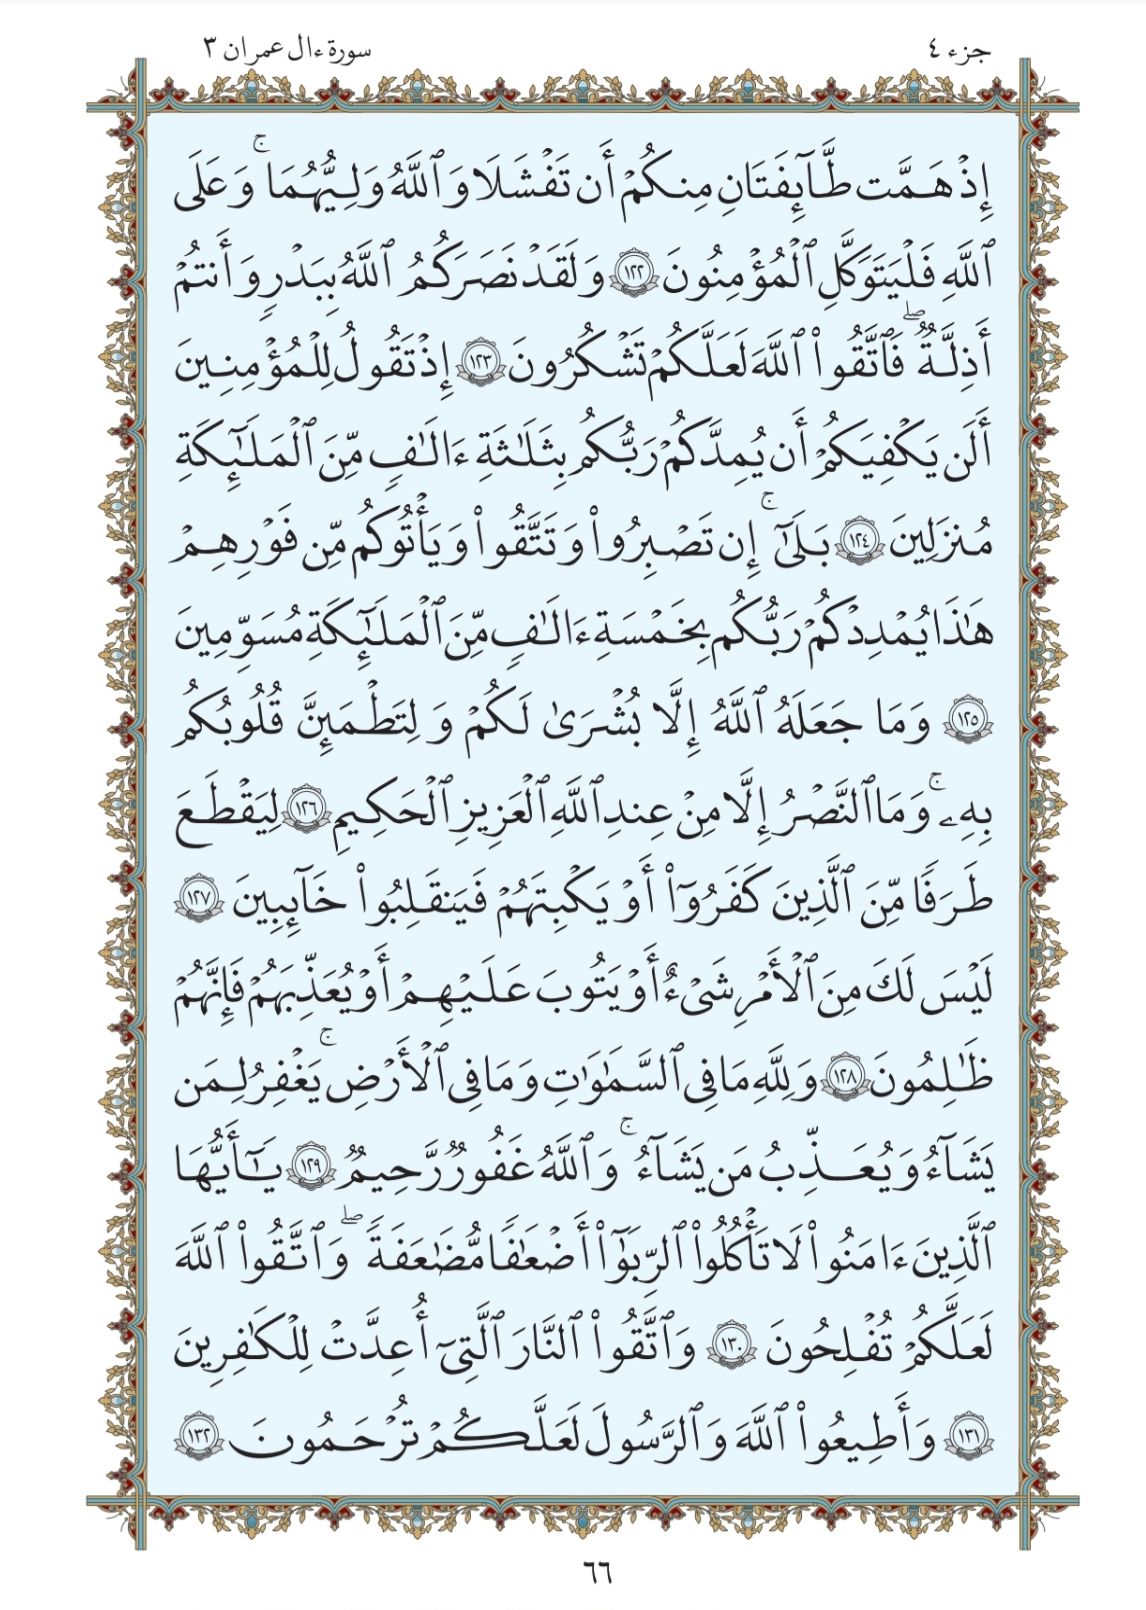 جزء ٤
سورة ءال عمران ٣
إِذْ هَمَّت طَّآئِفَتَانِ مِنكُمْ أَن تَفْشَلَا وَٱللَّهُ وَلِيُّهُمَا ۚ وَعَلَى
ٱللَّهِ فَلْيَتَوَكَّلِ ٱلْمُؤْمِنُونَ ١٢٢ وَلَقَدْ نَصَرَكُمُ ٱللَّهُ بِبَدْرٍ وَأَنتُمْ
أَذِلَّةٌ ۖ فَٱتَّقُوا۟ ٱللَّهَ لَعَلَّكُمْ تَشْكُرُونَ ١٢٣ إِذْ تَقُولُ لِلْمُؤْمِنِينَ
أَلَن يَكْفِيَكُمْ أَن يُمِدَّكُمْ رَبُّكُم بِثَلَـٰثَةِ ءَالَـٰفٍ مِّنَ ٱلْمَلَـٰٓئِكَةِ
مُنزَلِينَ ١٢٤ بَلَىٰٓ ۚ إِن تَصْبِرُوا۟ وَتَتَّقُوا۟ وَيَأْتُوكُم مِّن فَوْرِهِمْ
هَـٰذَا يُمْدِدْكُمْ رَبُّكُم بِخَمْسَةِ ءَالَـٰفٍ مِّنَ ٱلْمَلَـٰٓئِكَةِ مُسَوِّمِينَ
١٢٥ وَمَا جَعَلَهُ ٱللَّهُ إِلَّا بُشْرَىٰ لَكُمْ وَلِتَطْمَئِنَّ قُلُوبُكُم
بِهِۦ ۚ وَمَا ٱلنَّصْرُ إِلَّا مِنْ عِندِ ٱللَّهِ ٱلْعَزِيزِ ٱلْحَكِيمِ ١٢٦ لِيَقْطَعَ
طَرَفًا مِّنَ ٱلَّذِينَ كَفَرُوٓا۟ أَوْ يَكْبِتَهُمْ فَيَنقَلِبُوا۟ خَآئِبِينَ ١٢٧
لَيْسَ لَكَ مِنَ ٱلْأَمْرِ شَىْءٌ أَوْ يَتُوبَ عَلَيْهِمْ أَوْ يُعَذِّبَهُمْ فَإِنَّهُمْ
ظَـٰلِمُونَ ١٢٨ وَلِلَّهِ مَا فِى ٱلسَّمَـٰوَٰتِ وَمَا فِى ٱلْأَرْضِ ۚ يَغْفِرُ لِمَن
يَشَآءُ وَيُعَذِّبُ مَن يَشَآءُ ۚ وَٱللَّهُ غَفُورٌ رَّحِيمٌ ١٢٩ يَـٰٓأَيُّهَا
ٱلَّذِينَ ءَامَنُوا۟ لَا تَأْكُلُوا۟ ٱلرِّبَوٰٓا۟ أَضْعَـٰفًا مُّضَـٰعَفَةً ۖ وَٱتَّقُوا۟ ٱللَّهَ
لَعَلَّكُمْ تُفْلِحُونَ ١٣٠ وَٱتَّقُوا۟ ٱلنَّارَ ٱلَّتِىٓ أُعِدَّتْ لِلْكَـٰفِرِينَ
١٣١ وَأَطِيعُوا۟ ٱللَّهَ وَٱلرَّسُولَ لَعَلَّكُمْ تُرْحَمُونَ ١٣٢
٦٦